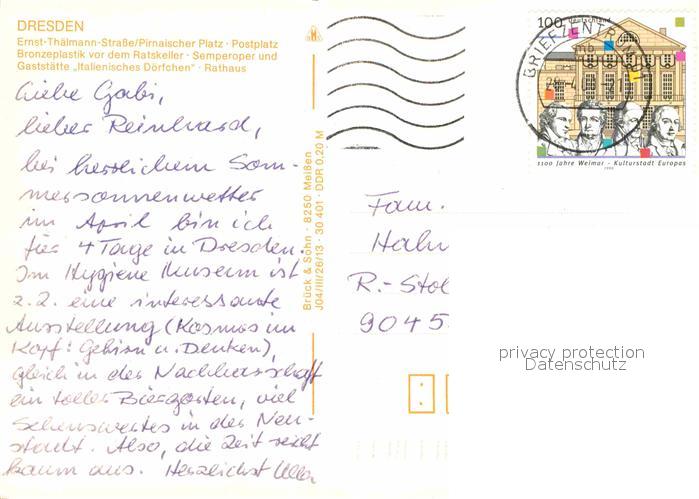 DRESDEN
Ernst-Thälmann-Straße/Pirnaischer Platz · Postplatz
Bronzeplastik vor dem Ratskeller · Semperoper und
Gaststätte „Italienisches Dörfchen“ · Rathaus
Liebe Gabi,
lieber Reinhard,
bei herrlichem Som-
mersonnenwetter
im April bin ich
für 4 Tage in Dresden.
Im Hygiene Museum ist
z. Z. eine interessante
Ausstellung (Kosmos im
Kopf: Gehirn u. Denken),
gleich in der Nachbarschaft
ein toller Biergarten, viel
Sehenswertes in der Neu-
stadt. Also, die Zeit reicht
kaum aus. Herzlichst Ulla
Brück & Sohn · 8250 Meißen
J04/III/26/13 · 30 401 · DDR 0,20 M
100 Deutschland
BRIEFZENTRUM
1100 Jahre Weimar - Kulturstadt Europas
1999
Fam.
Hahn
R.-Stol
9045
privacy protection
Datenschutz